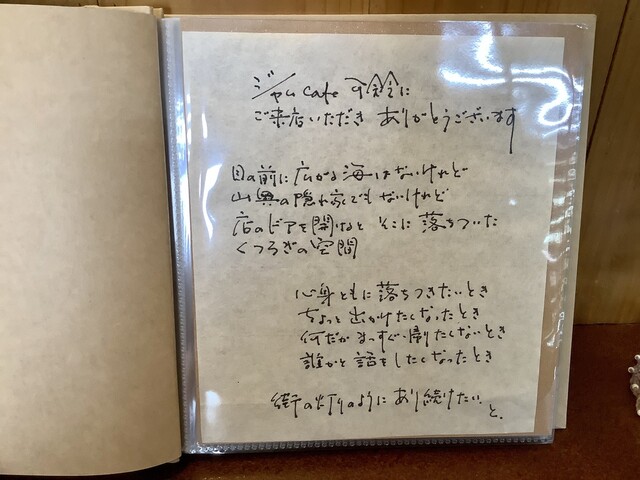 ジャム cafe に
ご来店いただき ありがとうございます
目の前に広がる海はないけれど
山奥の隠れ家でもないけれど
店のドアを開けると そこに 落ちついた
くつろぎの空間
心身ともに落ちつきたいとき
ちょっと出かけたくなったとき
何だかまっすぐ帰りたくないとき
誰かと話をしたくなったとき
街の灯りのように あり続けたい と、